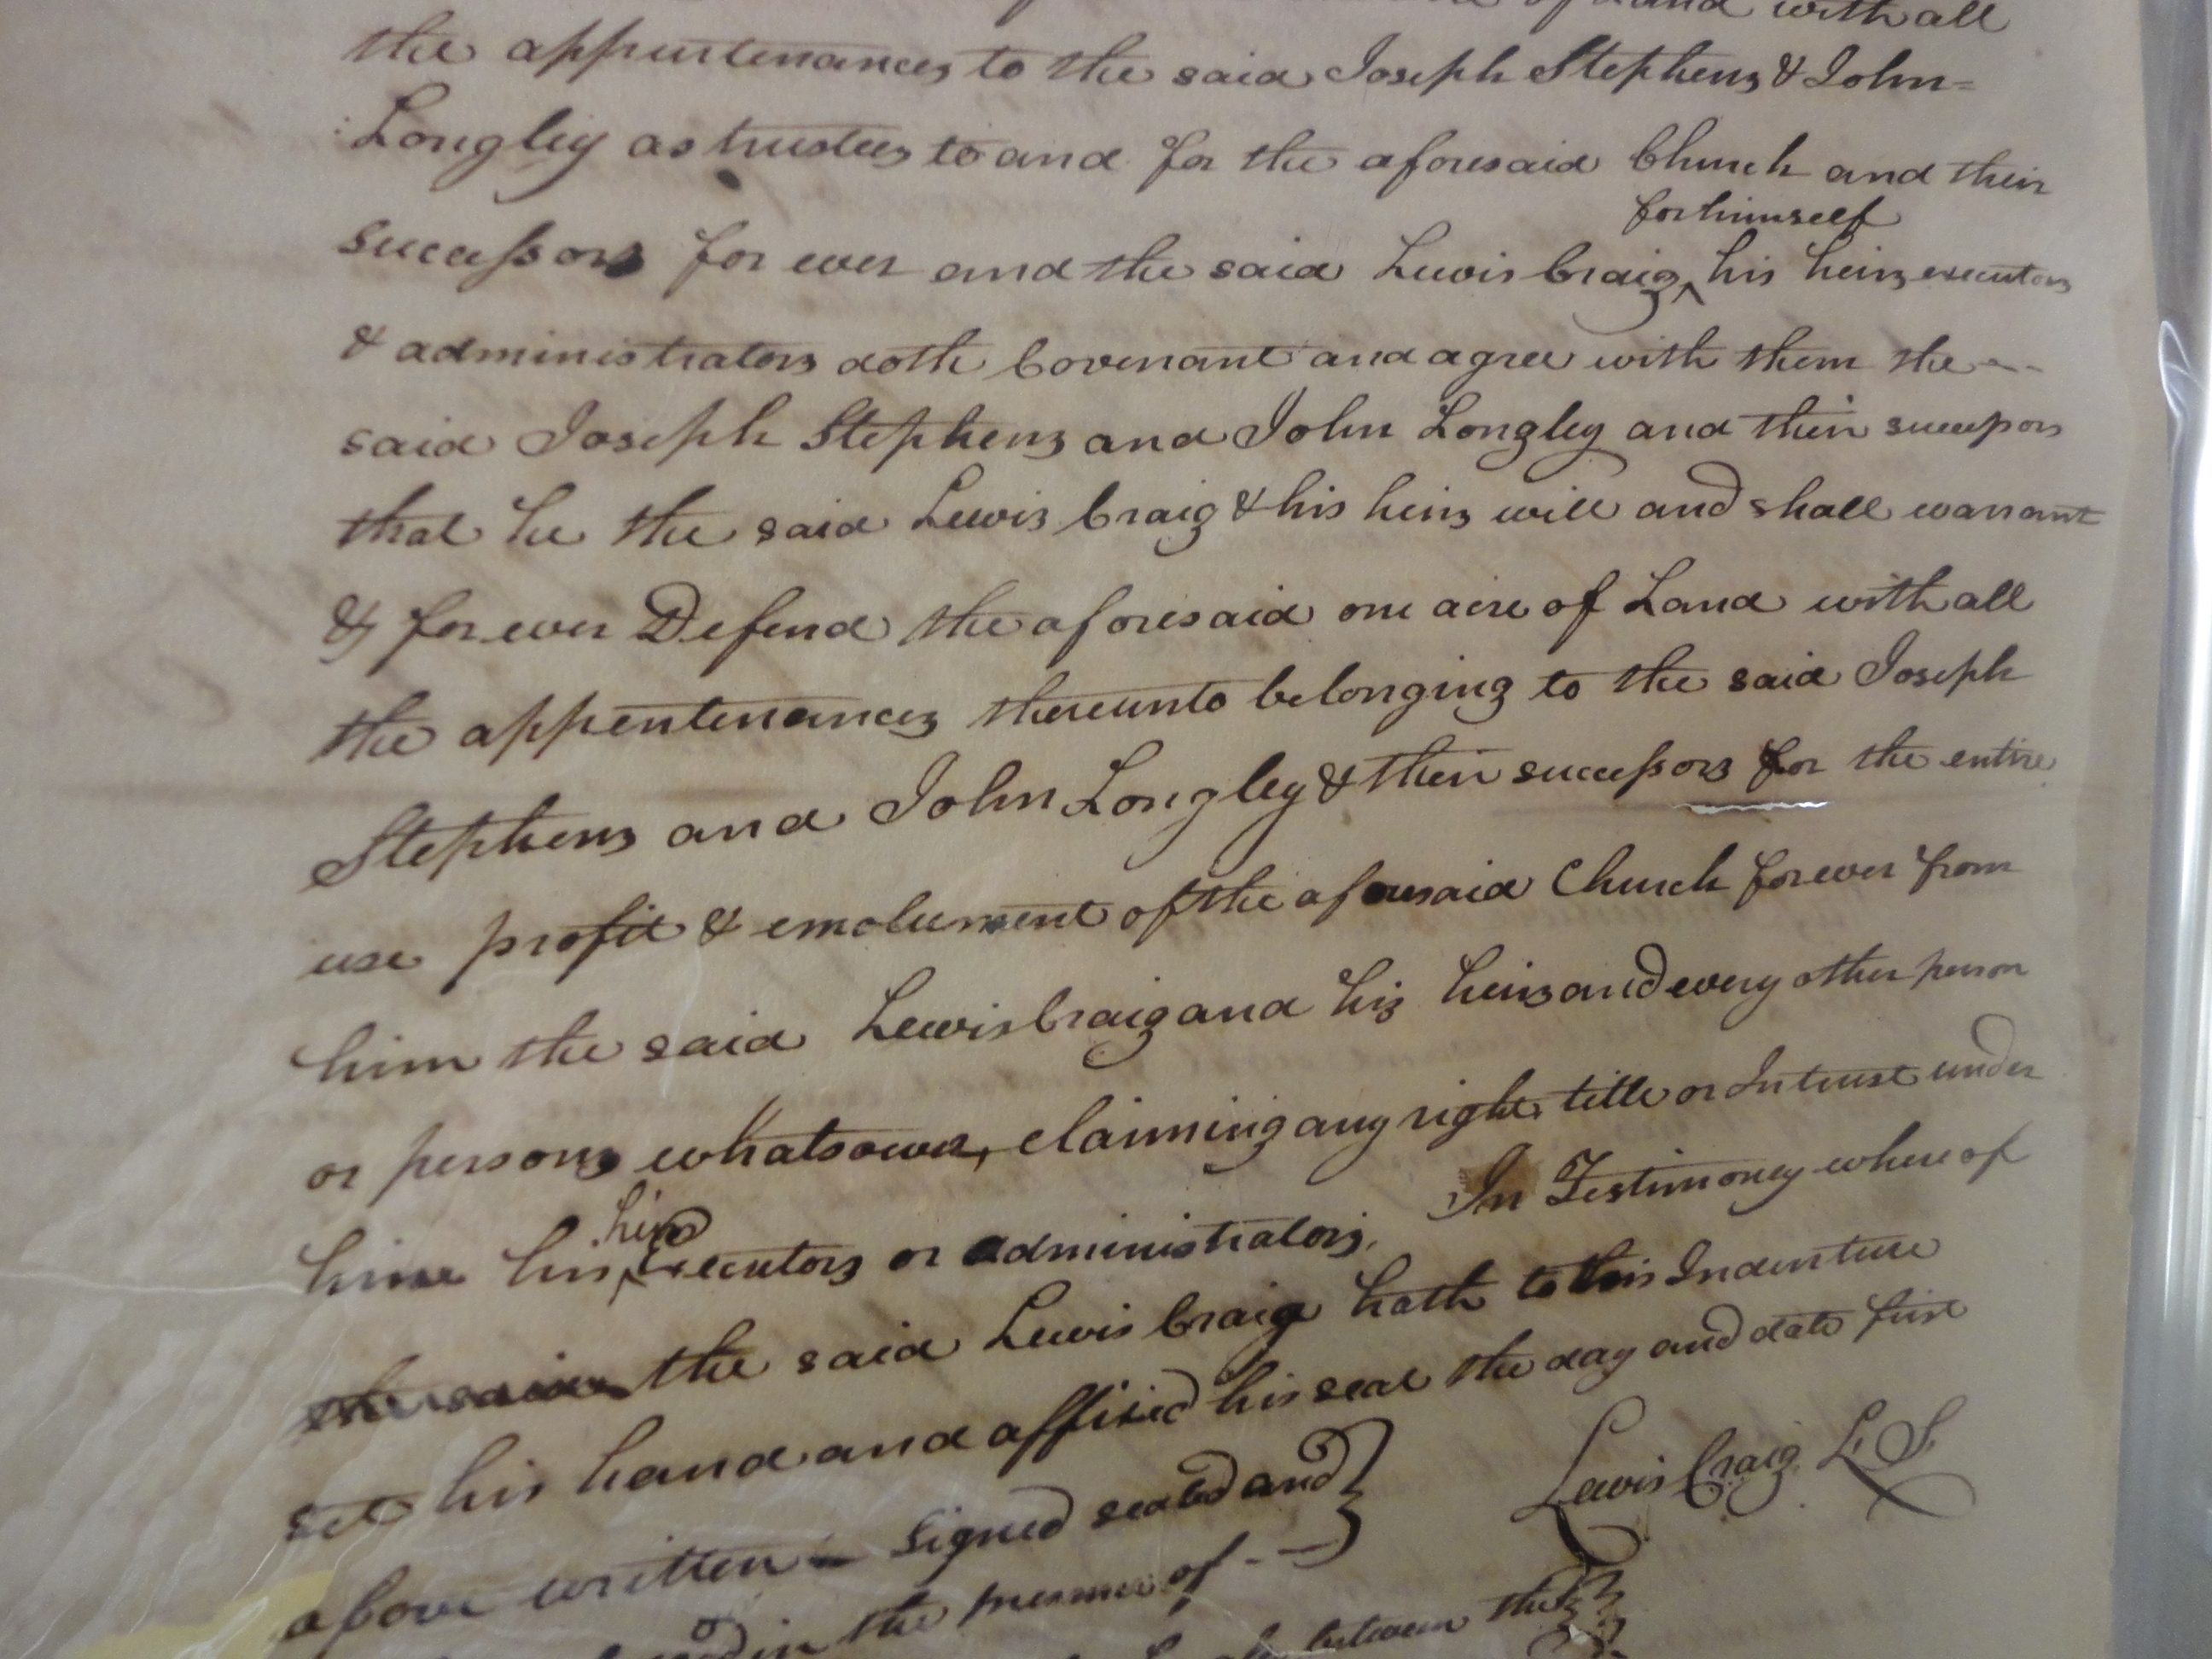 of Land with all
the appurtenances to the said Joseph Stephens & John=
Longley as trustees to and for the aforesaid Church and their
for himself
successors for ever and the said Lewis Craig ^ his heirs executors
& administrators doth Covenant and agree with them the --
said Joseph Stephens and John Longley and their successors
that he the said Lewis Craig & his heirs will and shall warrant
& for ever Defend the aforesaid one acre of Land with all
the appentenances thereunto belonging to the said Joseph
Stephens and John Longley & their successors for the entire
use profit & emolument of the aforesaid Church forever from
him the said Lewis Craig and his heirs and every other person
or persons whatsoever, claiming any right title or Interest under
heirs
him his ^ Executors or administrators. In Testimoney where of
the said the said Lewis Craig hath to this Indenture
set his hand and affixed his seal the day and date first
above written - Signed sealed and } Lewis Craig L.S.
in the presence of - -
between the